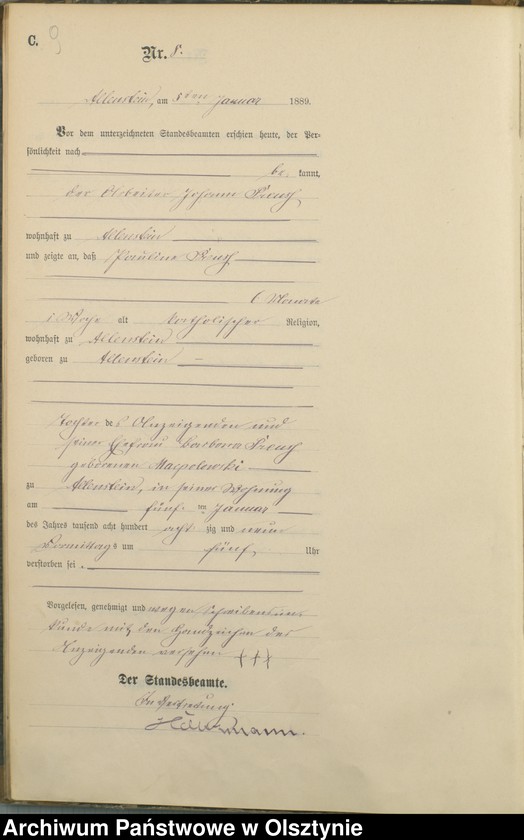 C. 9
Nr. 8.
Allenstein, am 5ten Januar 1889.
Vor dem unterzeichneten Standesbeamten erschien heute, der Per-
sönlichkeit nach
be kannt,
der Arbeiter Johann
wohnhaft zu Allenstein
und zeigte an, daß Pauline
6 Monate
1 Woche alt katholischer Religion,
wohnhaft zu Allenstein
geboren zu Allenstein
Tochter des Anzeigenden und
seiner Ehefrau Barbara
geborenen
zu Allenstein, in seiner Wohnung
am fünf ten Januar
des Jahres tausend acht hundert acht zig und neun
Vormittags um fünf Uhr
verstorben sei.
Vorgelesen, genehmigt und wegen Schreibensun-
kunde mit den Handzeichen des
Anzeigenden versehen +++
Der Standesbeamte.
In Vertretung.
Archiwum Państwowe w Olsztynie